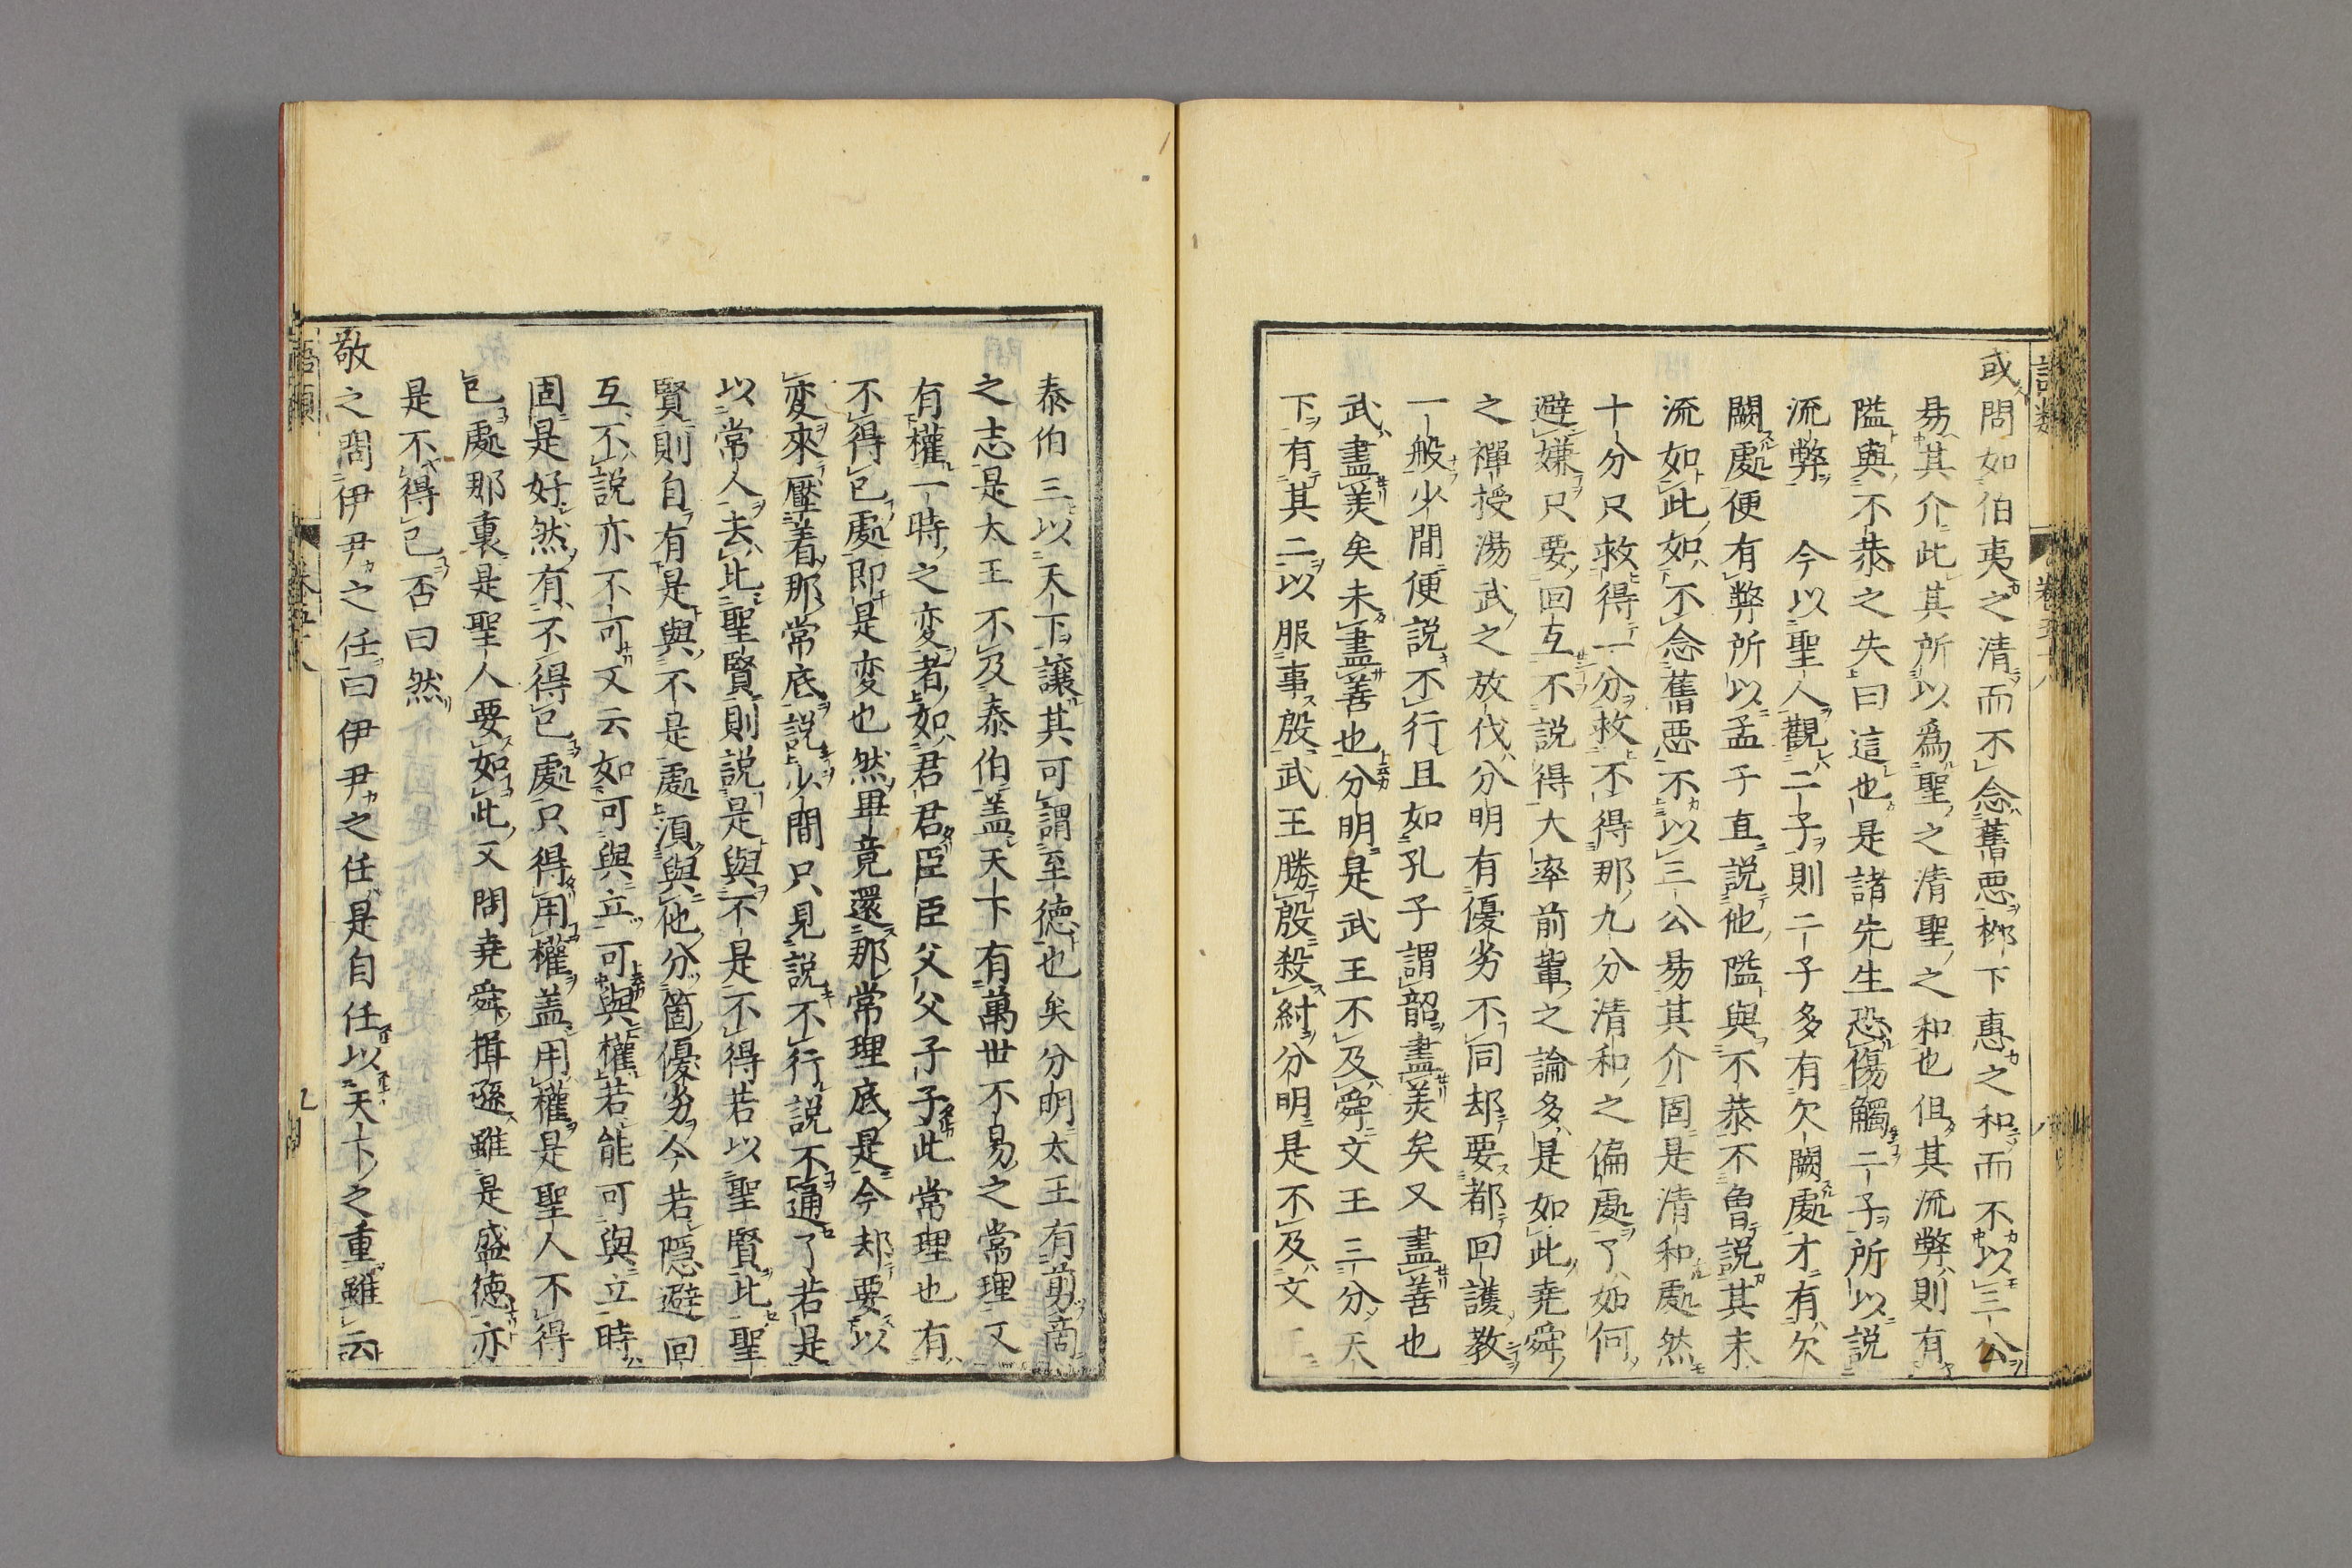 或問如伯夷之清而不念舊悪柳下惠之和而不以三公
易其介此其所以為聖之清聖之和也但其流弊則有
隘與不恭之失曰這也是諸先生恐傷觸二子所以説
流弊 今以聖人觀二子則二子多有欠闕處才有欠
闕處便有弊所以孟子直説他隘與不恭不曾説其末
流如此如不念舊悪不以三公易其介固是清和處然
十分只救得一分救不得那九分清和之偏處了如何
避嫌只要回互不説得大率前輩之論多是如此堯舜
之禪授湯武之放伐分明有優劣不同却要都回護教
一般少間便説不行且如孔子謂韶盡美矣又盡善也
武盡美矣未盡善也分明是武王不及舜文王三分天
下有其二以服事殷武王勝殷殺紂分明是不及文王
泰伯三以天下讓其可謂至德也矣分明太王有剪商
之志是太王不及泰伯蓋天下有萬世不易之常理又
有權一時之変者如君君臣臣父父子子此常理也有
不得已處即是変也然畢竟還那常理底是今却要以
変來壓着那常底説少間只見説不行説不通了若是
以常人去比聖賢則説是與不是不得若以聖賢比聖
賢則自有是與不是處須與他分箇優劣今若隱避回
互不説亦不可又云如可與立可與權若能可與立時
固是好然有不得已處只得用權蓋用權是聖人不得
已處那裏是聖人要如此又問堯舜揖遜雖是盛德亦
是不得已否曰然
敬之問伊尹之任曰伊尹之任是自任以天下之重雖云